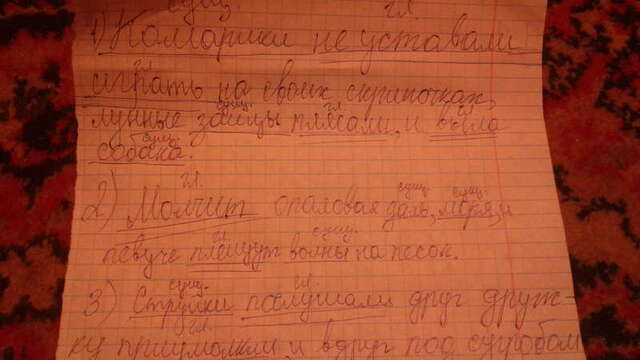 сущ. гл.
1) Комарики не уставали
гл.
играть на своих скрипочках,
сущ. гл. гл.
лунные зайцы плясали, и выла
сущ.
собака.
гл. сущ. сущ.
2) Молчит опаловая даль, моря, и
гл. сущ.
певуче плещут волны на песок.
сущ. гл.
3) Струйки послушали друг друж-
гл.
ку приумолкли и вдруг под сугробом